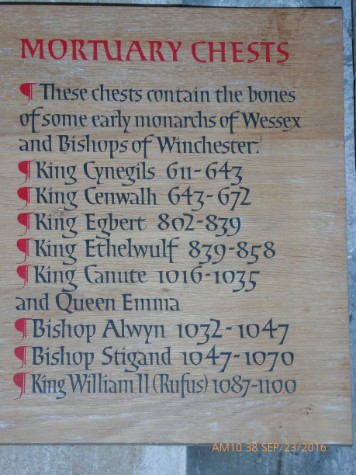 MORTUARY CHESTS
¶ These chests contain the bones
of some early monarchs of Wessex
and Bishops of Winchester:
¶ King Cynegils 611-643
¶ King Cenwalh 643-672
¶ King Egbert 802-839
¶ King Ethelwulf 839-858
¶ King Canute 1016-1035
and Queen Emma
¶ Bishop Alwyn 1032-1047
¶ Bishop Stigand 1047-1070
¶ King William II (Rufus) 1087-1100
AM10:38 SEP-23-2016